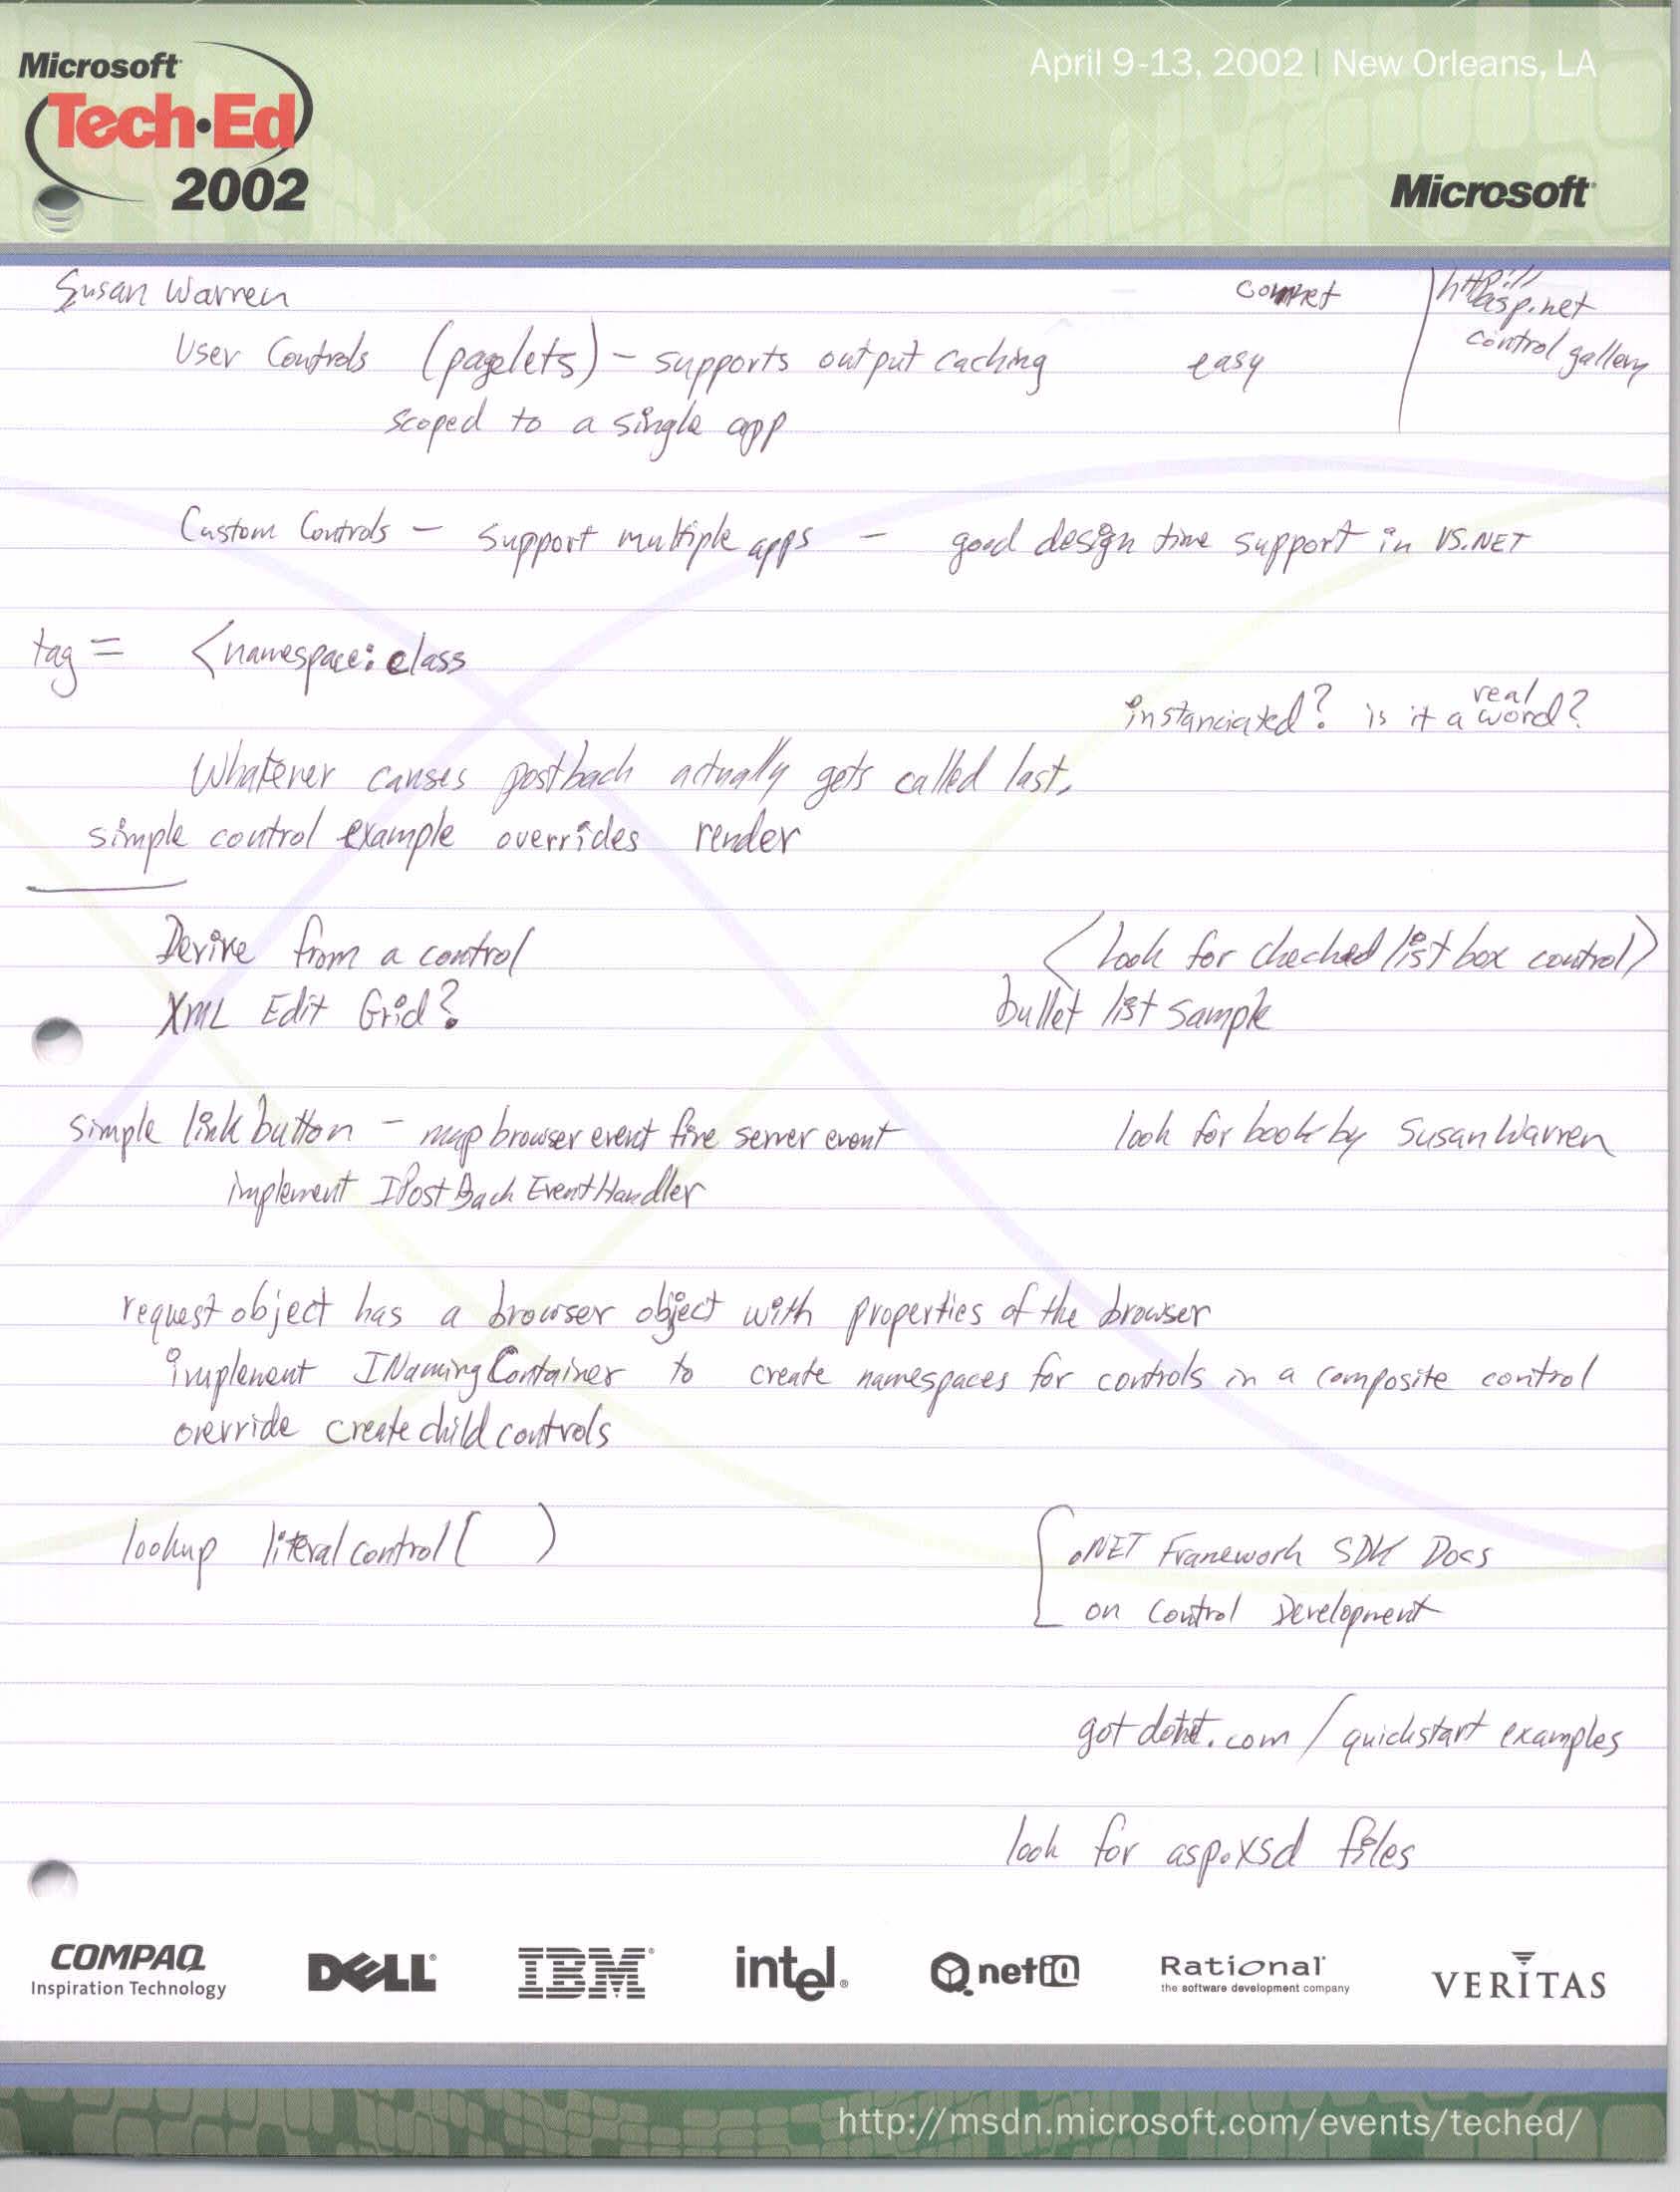 Microsoft
Tech·Ed
2002
April 9-13, 2002 | New Orleans, LA
Microsoft
Susan Warren
http://
asp.net
control gallery
User Controls (pagelets) - supports output caching easy
scoped to a single app
Custom Controls - support multiple apps - good design time support in VS.NET
tag = <namespace:class
instanciated? is it a real word?
Whatever causes postback actually gets called last,
simple control example overrides render
Derive from a control
<look for checked list box control>
XML Edit Grid?
bullet list sample
simple link button - map browser event fire server event
look for book by Susan Warren
implement IPostBackEventHandler
request object has a browser object with properties of the browser
implement INamingContainer to create namespaces for controls in a composite control
override createchildcontrols
lookup literalcontrol( )
.NET Framework SDK Docs
on Control Development
gotdotnet.com/quickstart examples
look for asp.xsd files
COMPAQ
Inspiration Technology
DELL
IBM
intel
netiQ
Rational
the software development company
VERITAS
http://msdn.microsoft.com/events/teched/